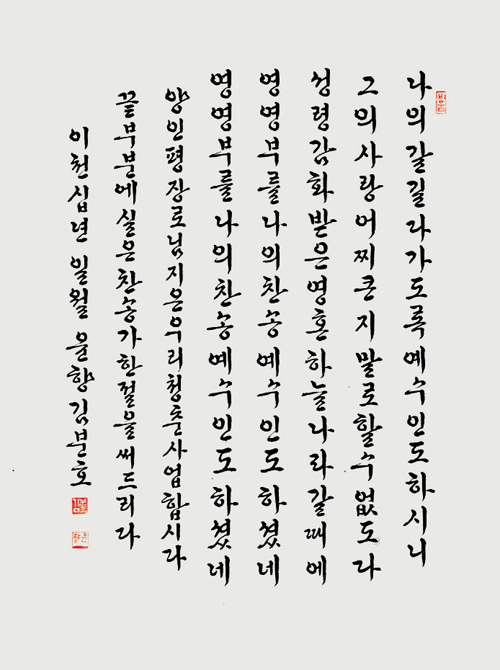 나의갈길다가도록예수인도하시니
그의사랑어찌큰지말로할수없도다
성령감화받은영혼하늘나라갈때에
영영부를나의찬송예수인도하셨네
영영부를나의찬송예수인도하셨네
양인평장로님지은우리청춘사업합시다
끝부분에실은찬송가한절을써드리다
이천십년일월윤향김분호